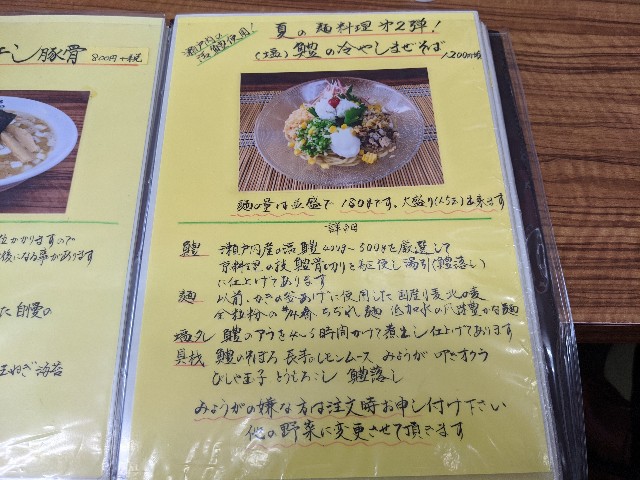 エン豚骨 800円+税
位かかりますので
後になる事があります
た自慢の
玉ねぎ 海苔
瀬戸内の
活鱧使用!
夏の麺料理 第2弾!
(塩)鱧の冷やしまぜそば 1,200円+税
麺の量は並盛で180gです。大盛り
出来ます
詳細
鱧 瀬戸内産の活鱧400g〜500gを厳選して
京料理の技 鱧骨切りを駆使し湯引(鱧落し)
に仕上げてあります
麺 以前、かきの釜あげに使用した国産小麦 北の麦
全粒粉の ちぢれ麺 低加水の風味豊かな麺
塩タレ 鱧のアラを4〜5時間かけて煮出し仕上げてあります
具材 鱧のそぼろ 長芋レモンムース みょうが 叩きオクラ
玉子 とうもろこし 鱧落し
みょうがの嫌な方は注文時お申し付け下さい
他の野菜に変更させて頂きます